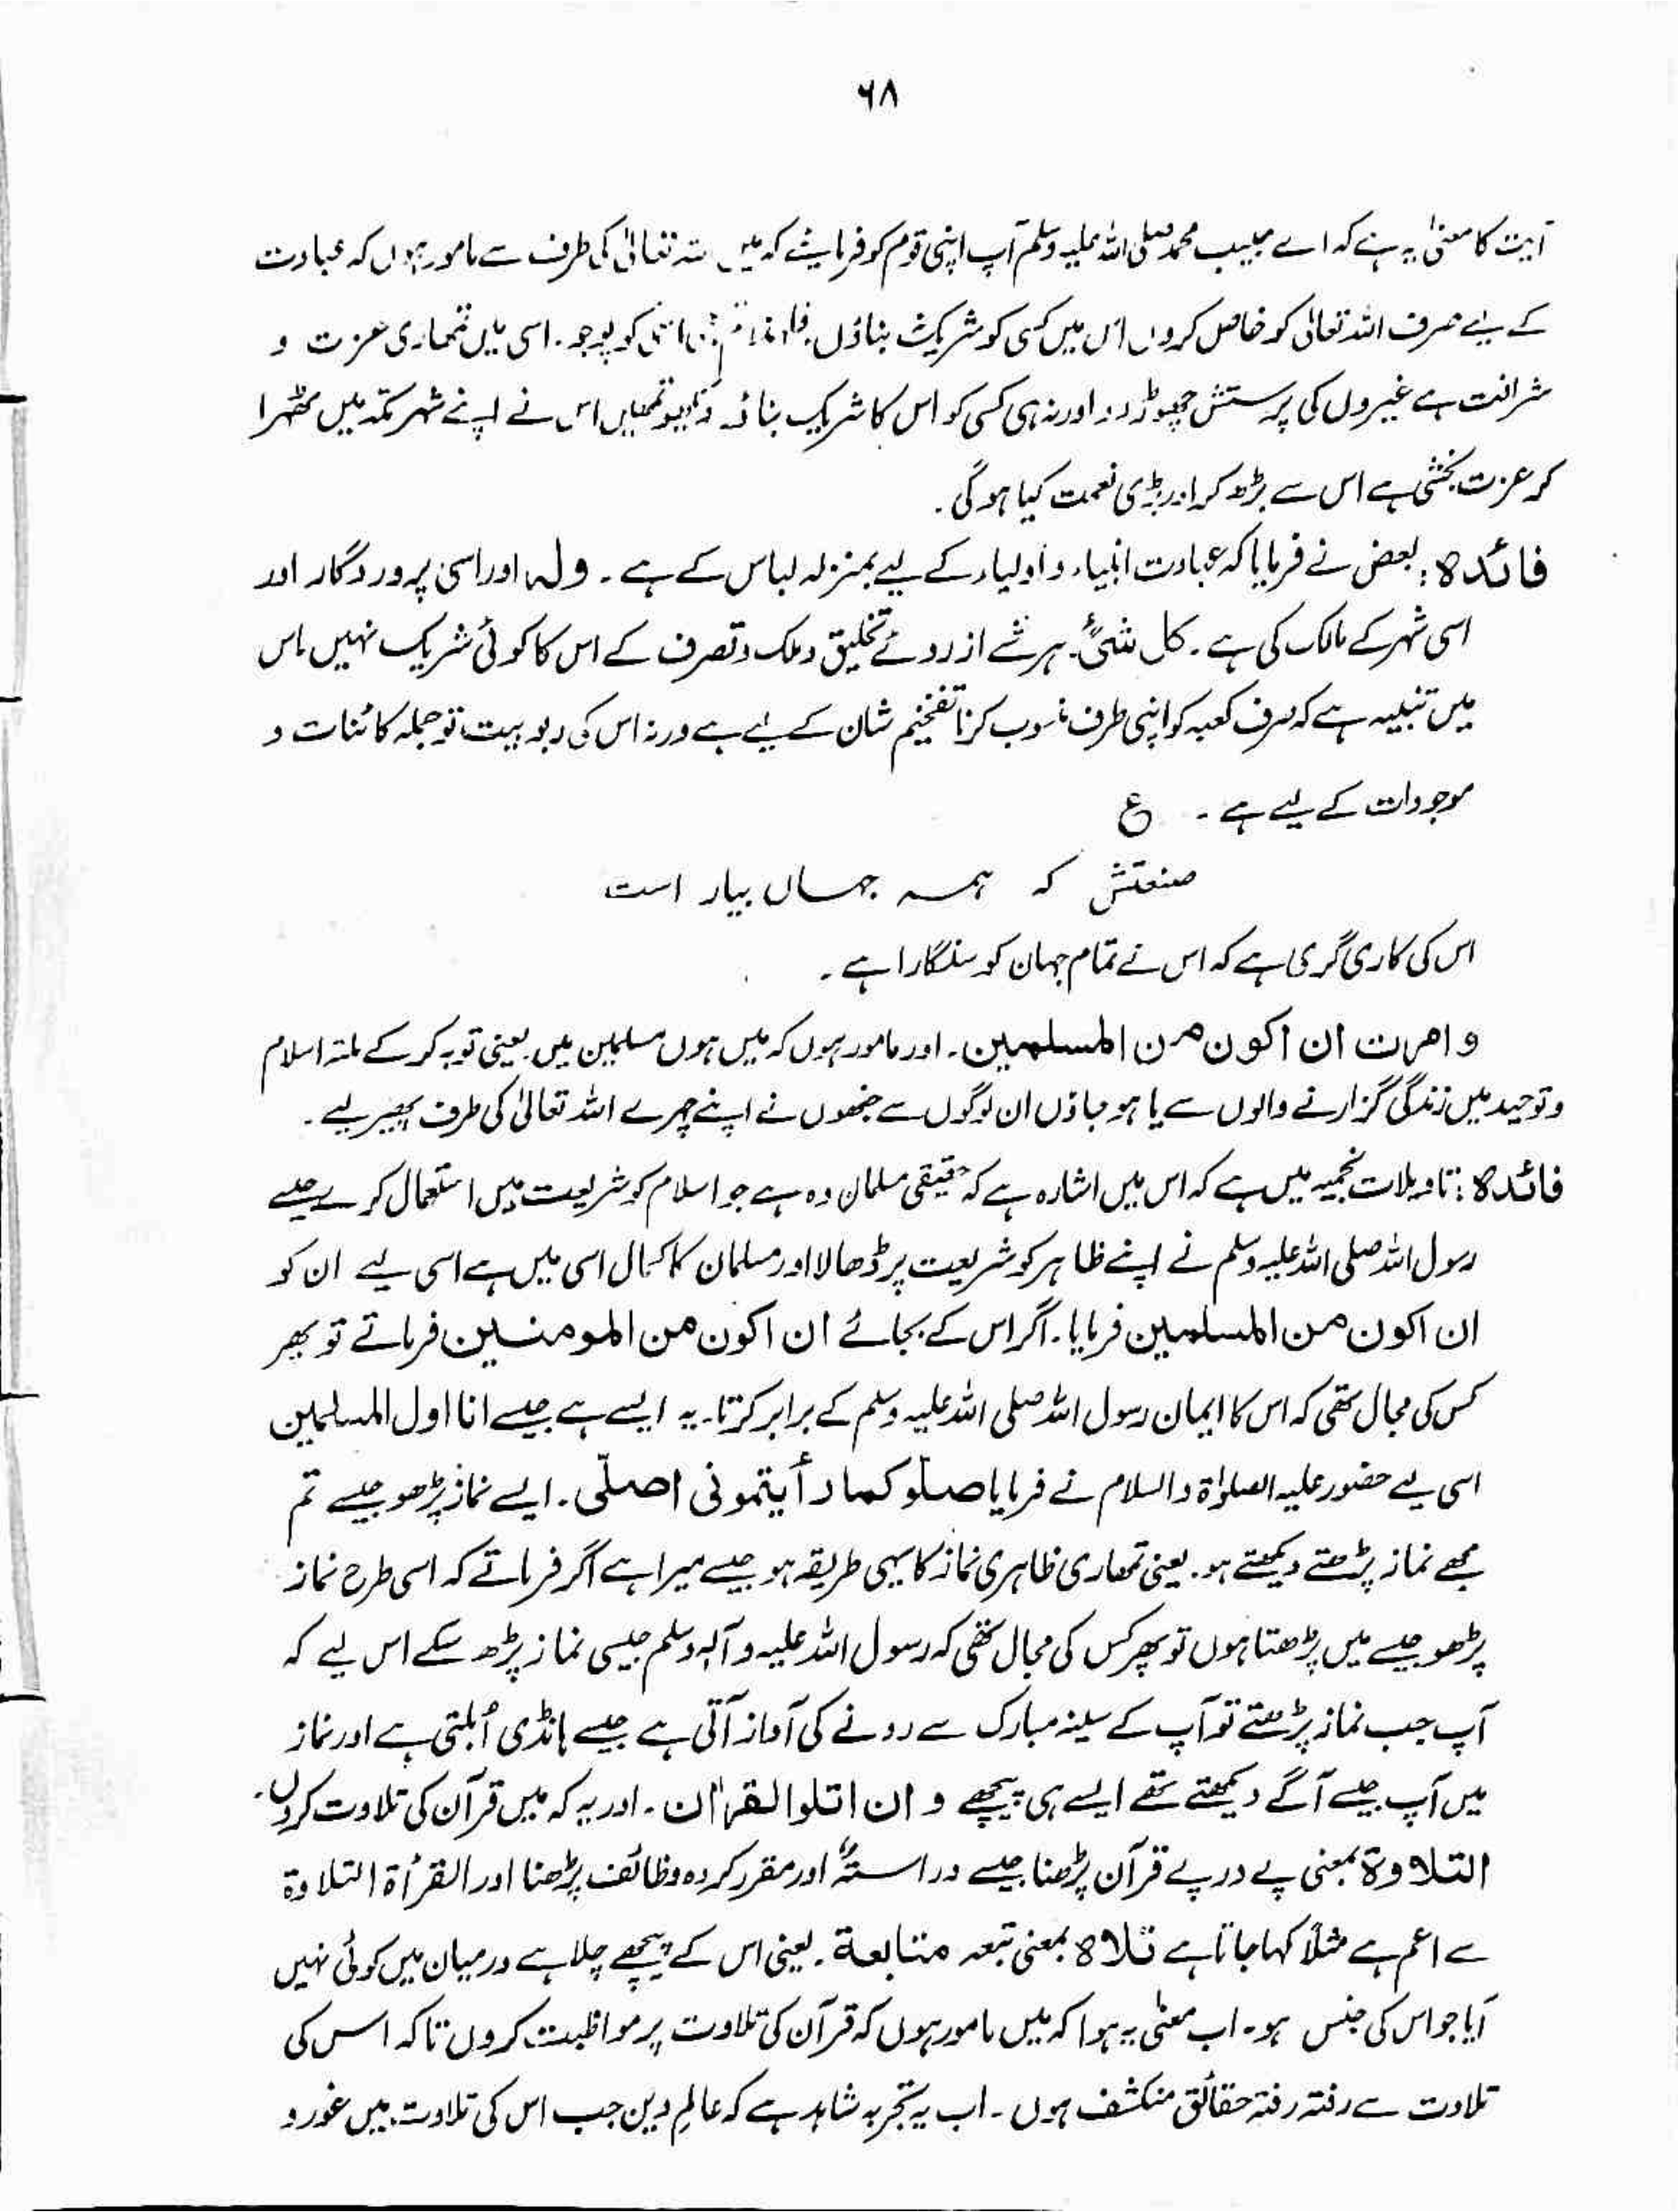 ۶۸
آیت کا معنیٰ یہ ہے کہ اے حبیب محمد صلی اللہ علیہ وسلم آپ اپنی قوم کو فرمایئے کہ میں اللہ تعالیٰ کی طرف سے مامور ہوں کہ عبادت
کے لیے صرف اللہ تعالیٰ کو خاص کروں اس میں کسی کو شریک بناؤں فلہٰذا تم بھی اسی کو پوجو۔ اسی میں تمھاری عزت و
شرافت ہے غیروں کی پرستش چھوڑ دو اور نہ ہی کسی کو اس کا شریک بناؤ دیکھو تمھیں اس نے اپنے شہر مکہ میں ٹھہرا
کر عزت بخشی ہے اس سے بڑھ کر اور بڑی نعمت کیا ہو گی۔
فائدہ: بعض نے فرمایا کہ عبادت انبیاء و اولیاء کے لیے بمنزلہ لباس کے ہے۔ ولہ اور اسی پروردگار اور
اسی شہر کے مالک کی ہے۔ کل شئ۔ ہر شے از روئے تخلیق و ملک و تصرف کے اس کا کوئی شریک نہیں اس
میں تنبیہ ہے کہ صرف کعبہ کو اپنی طرف منسوب کرنا تفخیم شان کے لیے ہے ورنہ اس کی ربوبیت تو جملہ کائنات و
موجودات کے لیے ہے۔ ع
صنعتش کہ ہمہ جہاں بیار است
اس کی کاری گری ہے کہ اس نے تمام جہان کو سنگارا ہے۔
و امرت ان اکون من المسلمین۔ اور مامور ہوں کہ میں ہوں مسلمین میں یعنی توبہ کر کے ملتہ اسلام
و توحید میں زندگی گزارنے والوں سے یا ہو جاؤں ان لوگوں سے جنھوں نے اپنے چہرے اللہ تعالیٰ کی طرف پھیر لیے۔
فائدہ: تاویلات نجمیہ میں ہے کہ اس میں اشارہ ہے کہ حقیقی مسلمان وہ ہے جو اسلام کو شریعت میں استعمال کرے جیسے
رسول اللہ صلی اللہ علیہ وسلم نے اپنے ظاہر کو شریعت پر ڈھالا اور مسلمان کا کمال اسی میں ہے اسی لیے ان کو
ان اکون من المسلمین فرمایا۔ اگر اس کے بجائے ان اکون من المومنین فرماتے تو پھر
کس کی مجال تھی کہ اس کا ایمان رسول اللہ صلی اللہ علیہ وسلم کے برابر کرتا۔ یہ ایسے ہے جیسے انا اول المسلمین
اسی لیے حضور علیہ الصلوٰۃ والسلام نے فرمایا صلّو کما رأیتمونی اصلّی۔ ایسے نماز پڑھو جیسے تم
مجھے نماز پڑھتے دیکھتے ہو۔ یعنی تمھاری ظاہری نماز کا یہی طریقہ ہو جیسے میرا ہے اگر فرماتے کہ اسی طرح نماز
پڑھو جیسے میں پڑھتا ہوں تو پھر کس کی مجال تھی کہ رسول اللہ علیہ وآلہ وسلم جیسی نماز پڑھ سکے اس لیے کہ
آپ جب نماز پڑھتے تو آپ کے سینہ مبارک سے رونے کی آواز آتی ہے جیسے ہانڈی اُبلتی ہے اور نماز
میں آپ جیسے آگے دیکھتے تھے ایسے ہی پیچھے و ان اتلوا القرآن۔ اور یہ کہ میں قرآن کی تلاوت کروں۔
التلاوۃ بمعنی پے در پے قرآن پڑھنا جیسے دراستہً اور مقرر کردہ وظائف پڑھنا اور القرأۃ التلاوۃ
سے اعم ہے مثلاً کہا جاتا ہے تلاہ بمعنی تبعہ متابعۃ۔ یعنی اس کے پیچھے چلا ہے درمیان میں کوئی نہیں
آیا جو اس کی جنس ہو۔ اب معنٰی یہ ہوا کہ میں مامور ہوں کہ قرآن کی تلاوت پر مواظبت کروں تاکہ اس کی
تلاوت سے رفتہ رفتہ حقائق منکشف ہوں۔ اب یہ تجربہ شاہد ہے کہ عالمِ دین جب اس کی تلاوت میں غور و